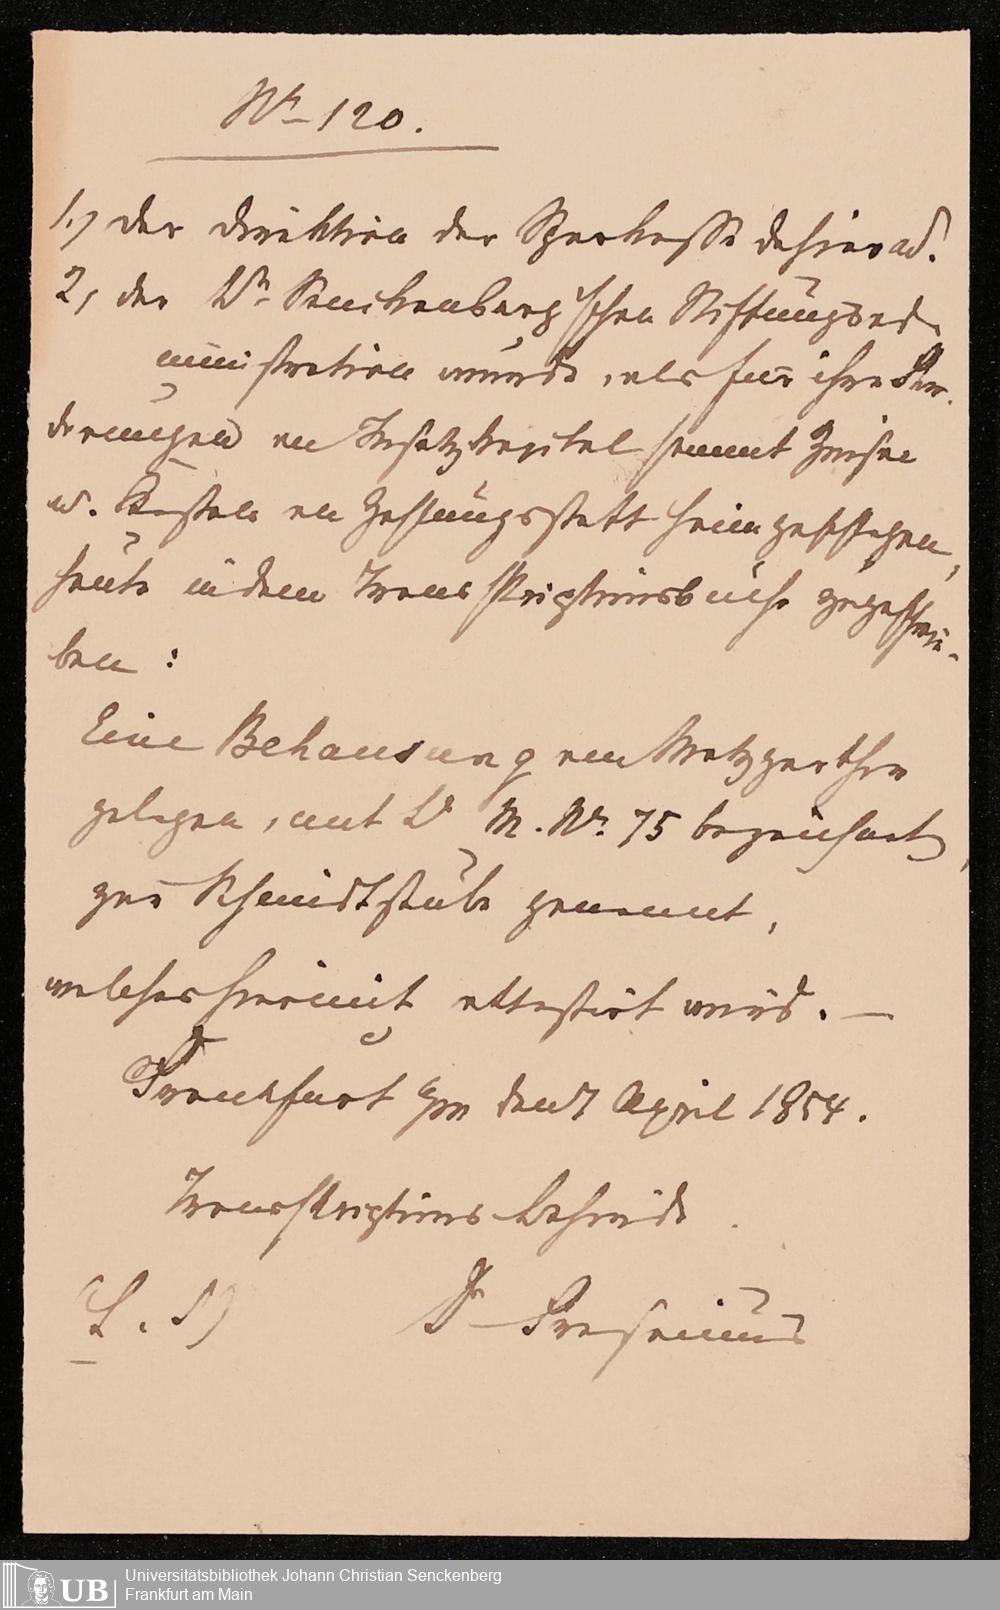 Nr. 120.
1.) der Direktion der Sparkasse dahier ad.
2, der Dr. Senckenberg'schen Stiftungsad-
ministration wurde, als für ihre For-
derungen an Insatzkapital sammt Zinsen
u. Kosten an Zahlungsstatt heimgeschlagen,
heute in dem Transskriptionsbuche zugeschrie-
ben:
Eine Behausung am Metzgerthor
gelegen, mit Lr M. Nr. 75 bezeichnet,
zur Schmidtstube genannt,
welches hiermit attestirt wird. —
Frankfurt a/m den 7 April 1854.
Transskriptions behörde
(L. S) Dr Fresenius
UB
Universitätsbibliothek Johann Christian Senckenberg
Frankfurt am Main